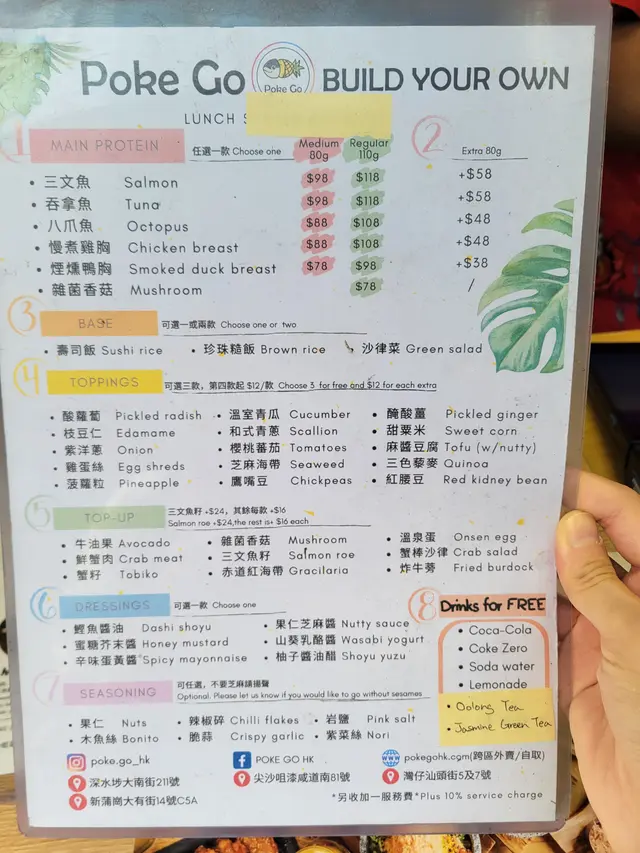 Poke Go Poke Go BUILD YOUR OWN
LUNCH S
1 MAIN PROTEIN 任選一款 Choose one Medium 80g Regular 110g 2 Extra 80g
• 三文魚 Salmon $98 $118 +$58
• 吞拿魚 Tuna $98 $118 +$58
• 八爪魚 Octopus $88 $108 +$48
• 慢煮雞胸 Chicken breast $88 $108 +$48
• 煙燻鴨胸 Smoked duck breast $78 $98 +$38
• 雜菌香菇 Mushroom $78 /
3 BASE 可選一或兩款 Choose one or two
• 壽司飯 Sushi rice • 珍珠糙飯 Brown rice • 沙律菜 Green salad
4 TOPPINGS 可選三款，第四款起 $12/款 Choose 3 for free and $12 for each extra
• 酸蘿蔔 Pickled radish • 溫室青瓜 Cucumber • 醃酸薑 Pickled ginger
• 枝豆仁 Edamame • 和式青蔥 Scallion • 甜粟米 Sweet corn
• 紫洋蔥 Onion • 櫻桃蕃茄 Tomatoes • 麻醬豆腐 Tofu (w/nutty)
• 雞蛋絲 Egg shreds • 芝麻海帶 Seaweed • 三色藜麥 Quinoa
• 菠蘿粒 Pineapple • 鷹嘴豆 Chickpeas • 紅腰豆 Red kidney bean
5 TOP-UP 三文魚籽 +$24, 其餘每款 +$16
Salmon roe +$24,the rest is+ $16 each
• 牛油果 Avocado • 雜菌香菇 Mushroom • 溫泉蛋 Onsen egg
• 鮮蟹肉 Crab meat • 三文魚籽 Salmon roe • 蟹棒沙律 Crab salad
• 蟹籽 Tobiko • 赤道紅海帶 Gracilaria • 炸牛蒡 Fried burdock
6 DRESSINGS 可選一款 Choose one
• 鰹魚醬油 Dashi shoyu • 果仁芝麻醬 Nutty sauce
• 蜜糖芥末醬 Honey mustard • 山葵乳酪醬 Wasabi yogurt
• 辛味蛋黃醬 Spicy mayonnaise • 柚子醬油醋 Shoyu yuzu
7 SEASONING 可任選，不要芝麻請揚聲
Optional. Please let us know if you would like to go without sesames
• 果仁 Nuts • 辣椒碎 Chilli flakes • 岩鹽 Pink salt
• 木魚絲 Bonito • 脆蒜 Crispy garlic • 紫菜絲 Nori
8 Drinks for FREE
• Coca-Cola
• Coke Zero
• Soda water
• Lemonade
• Oolong Tea
• Jasmine Green Tea
poke.go_hk POKE GO HK pokegohk.com(跨區外賣/自取)
深水埗大南街211號 尖沙咀漆咸道南81號 灣仔汕頭街5及7號
新蒲崗大有街14號C5A *另收加一服務費*Plus 10% service charge